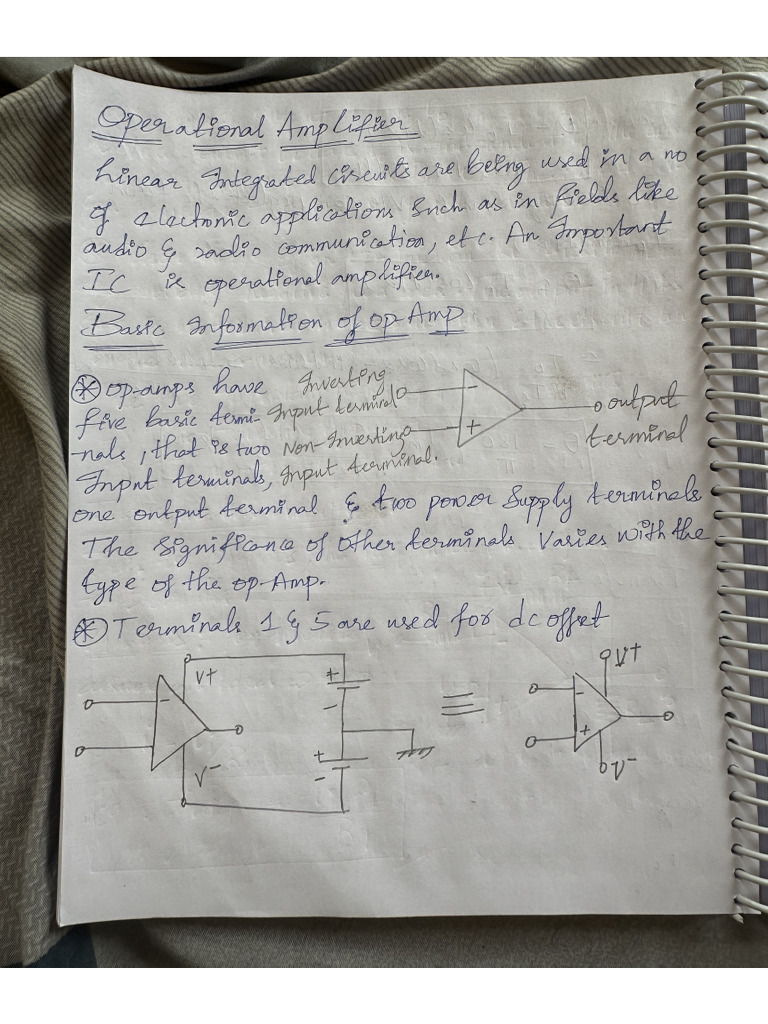 Operational Amplifier
Linear Integrated Circuits are being used in a no
of electronic applications such as in fields like
audio & radio communication, etc. An Important
IC is operational amplifier.
Basic Information of op-Amp
* op-amps have
five basic termi-
nals, that is two
Input terminals,
Inverting
Input terminal
Non-Inverting
Input terminal.
-
+
output
terminal
one output terminal & two power Supply terminals
The Significance of Other terminals Varies with the
type of the op-Amp.
* Terminals 1 & 5 are used for dc offset
V+
-
V-
+
-
+
-
≡
V+
-
+
V-